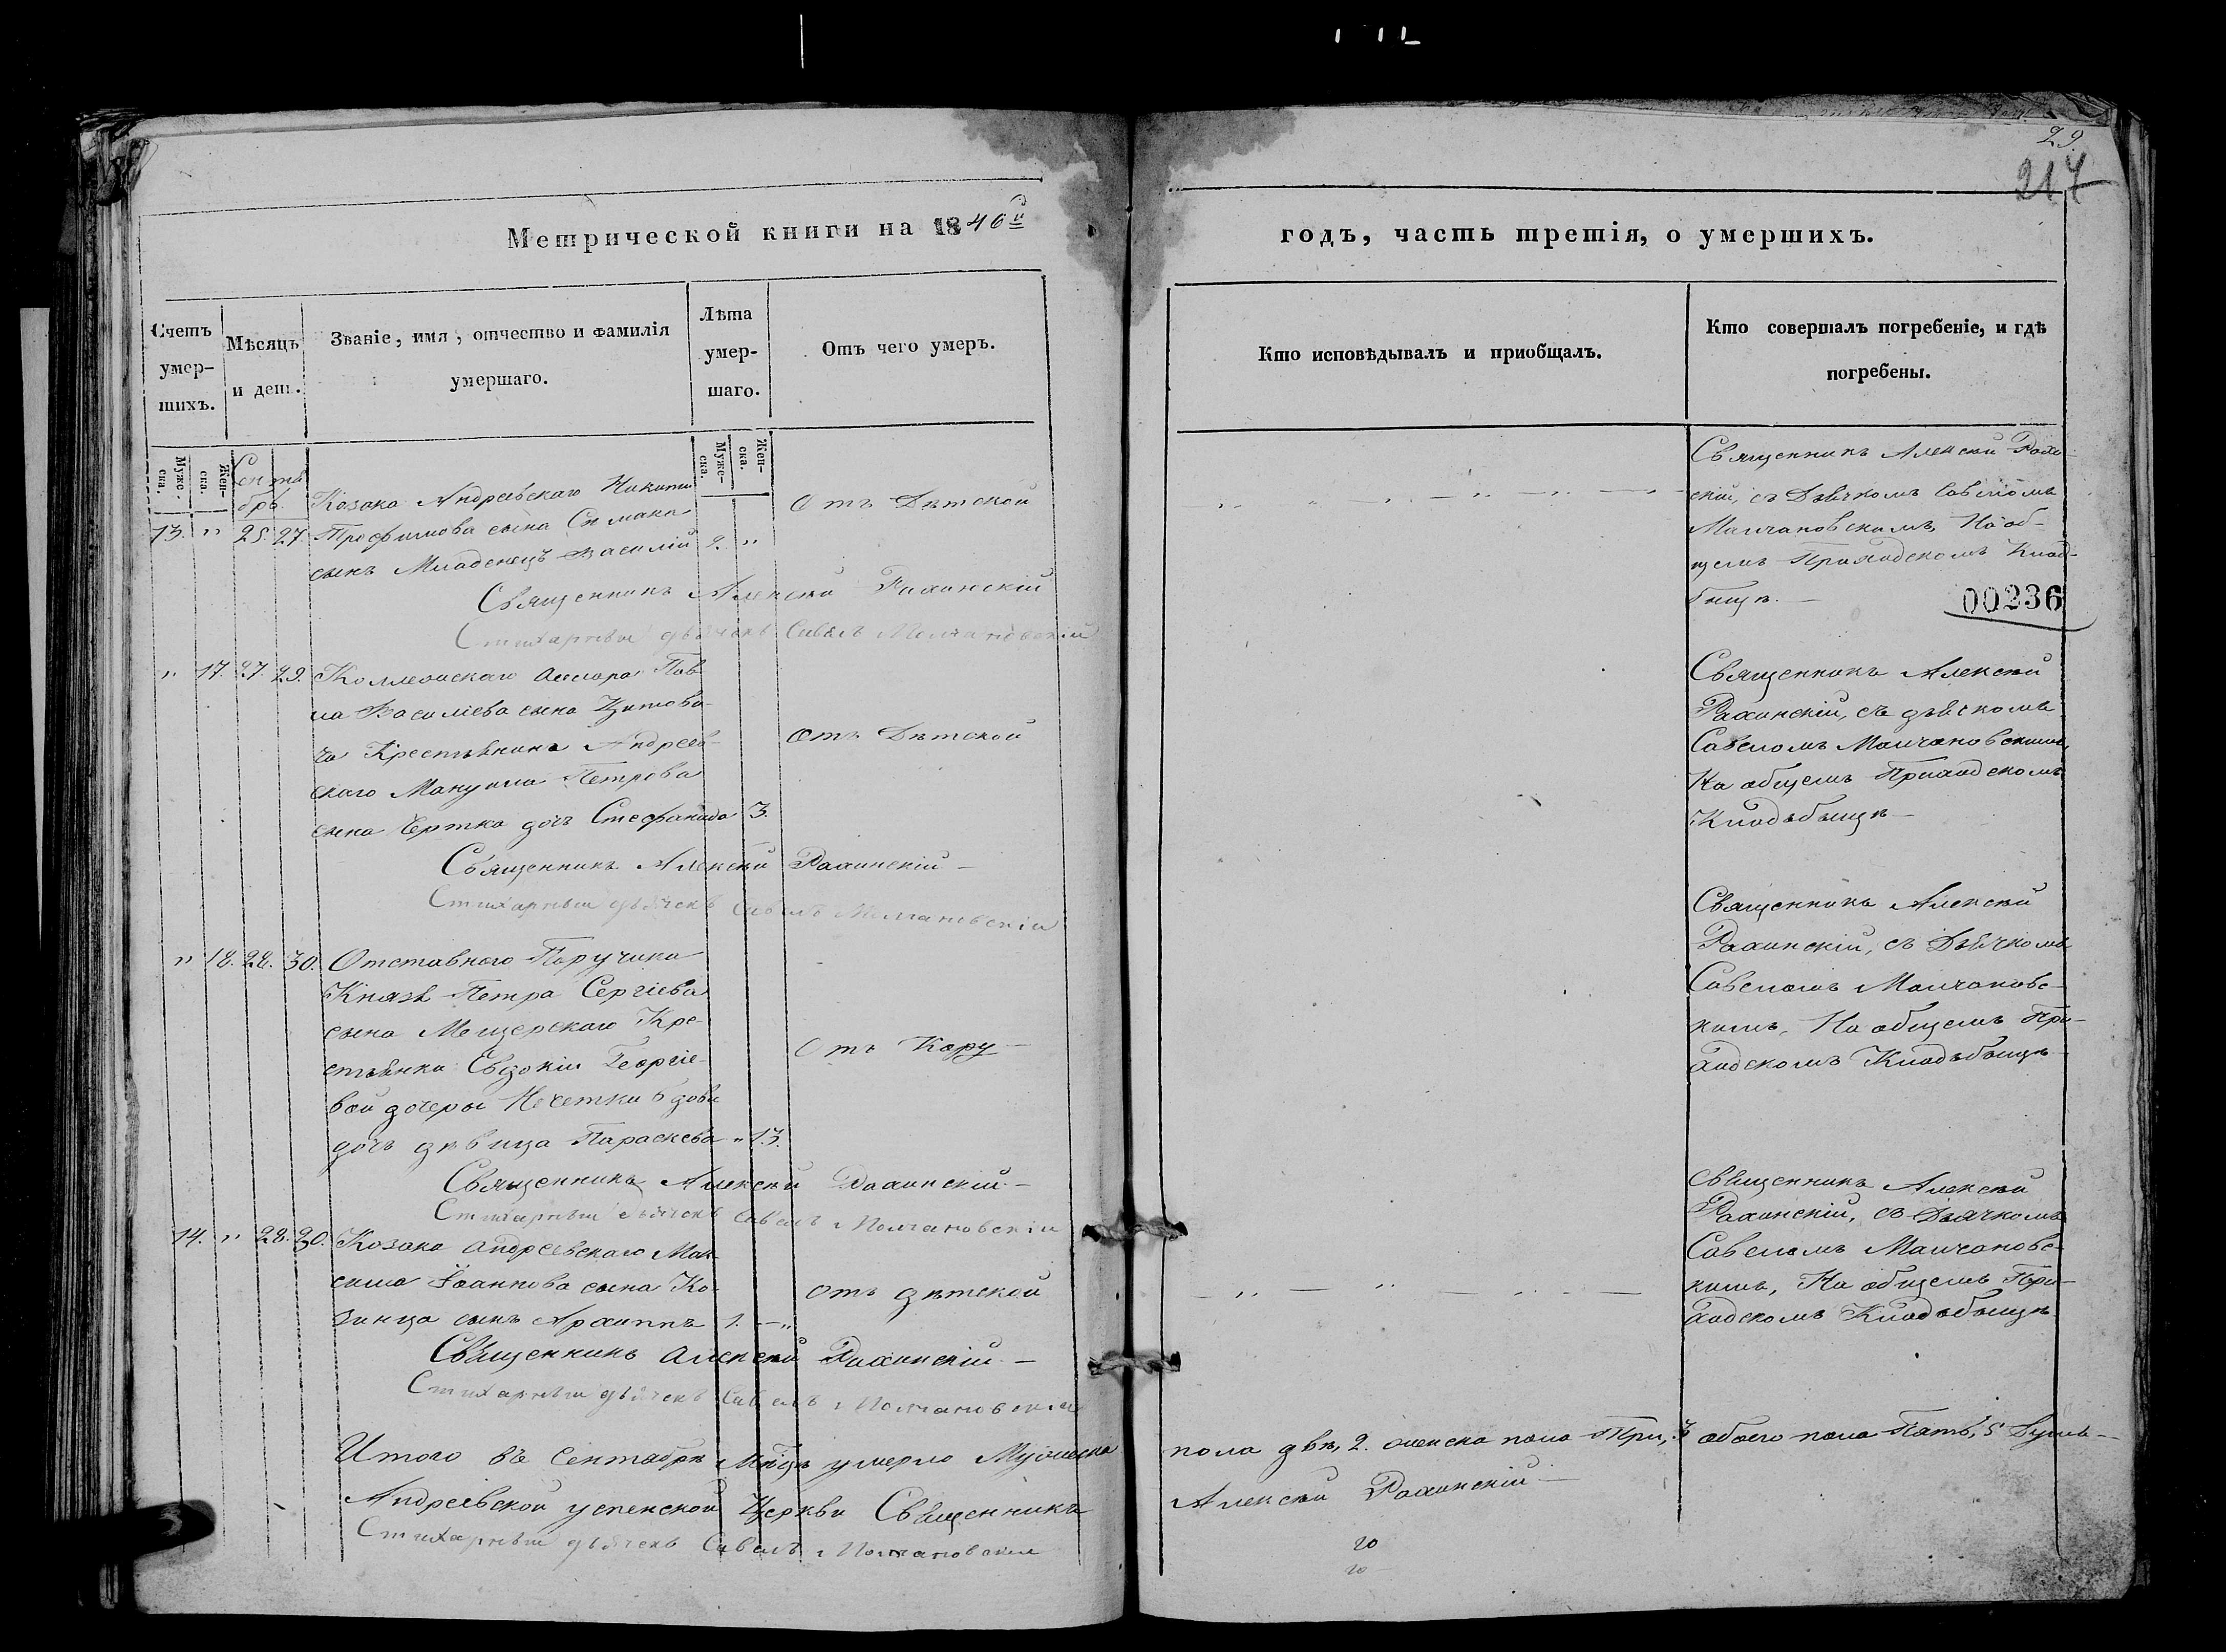 29.
217
Метрической книги на 1840й
годъ, часть третія, о умершихъ.
Счетъ умер-шихъ.
Мѣсяцъ и ден.
Званіе, имя, отчество и фамилія умершаго.
Лѣта умер-шаго.
Отъ чего умеръ.
Кто исповѣдывалъ и приобщалъ.
Кто совершалъ погребеніе, и гдѣ погребены.
Муже-ска.
Жен-ска.
Муже-ска.
Жен-ска.
Сентя
брь
Козака Андреевскаго Никиты
13. " 25. 27. Трофимова сына
сынъ Младенецъ Василій 2. "
Отъ Дѣтской
Священникъ Алексѣй Рахинскій
Стихарный дьячекъ Савелъ Молчановскій
Священникъ Алексѣй Рахи-
скій, съ Дьячкомъ Савеломъ
Молчановскимъ, На об-
щемъ Приходскомъ Клад-
бищѣ.
00236
" 17. 27. 29. Коллежскаго Ассесора Пав
ла Василіева сына
ча Крестьянина Андреев-
скаго Мануила Петрова
сына Чертка дочь Стефанида 3.
Отъ Дѣтской
Священникъ Алексѣй Рахинскій
Стихарный дьячекъ Савелъ Молчановскій
Священникъ Алексѣй
Рахинскій, съ дьячкомъ
Савеломъ Молчановскимъ,
На общемъ Приходскомъ
Кладьбищѣ
" 18. 28. 30. Отставного Поручика
Князя Петра Сергіева
сына Мещерскаго Кре-
стьянки Евдокіи Георгіе-
вой дочеры Нечетки вдовы
дочь дѣвица Параскева " 13.
Отъ Кору
Священникъ Алексѣй Рахинскій
Стихарный дьячекъ Савелъ Молчановскій
Священникъ Алексѣй
Рахинскій, съ Дьячкомъ
Савеломъ Молчановс-
кимъ, На общемъ При-
ходскомъ Кладьбищѣ
14. " 28. 30. Козака Андреевскаго Мак-
сима Іоаннова сына Ко-
зинца сынъ Архиппъ 1. — "
отъ дѣтской
Священникъ Алексѣй Рахинскій
Стихарный дьячекъ Савелъ Молчановскій
Священникъ Алексѣй
Рахинскій, съ Дьячкомъ
Савеломъ Молчановс-
кимъ, На общемъ При-
ходскомъ Кладьбищѣ
Итого въ Сентябрѣ Мѣцѣ умерло Мужеска
пола двѣ, 2. женска пола Три, 3 обоего пола Пять, 5 Душъ
Андреевской успенской Церкви Священникъ
Алексѣй Рахинскій
Стихарный дьячекъ Савелъ Молчановскій